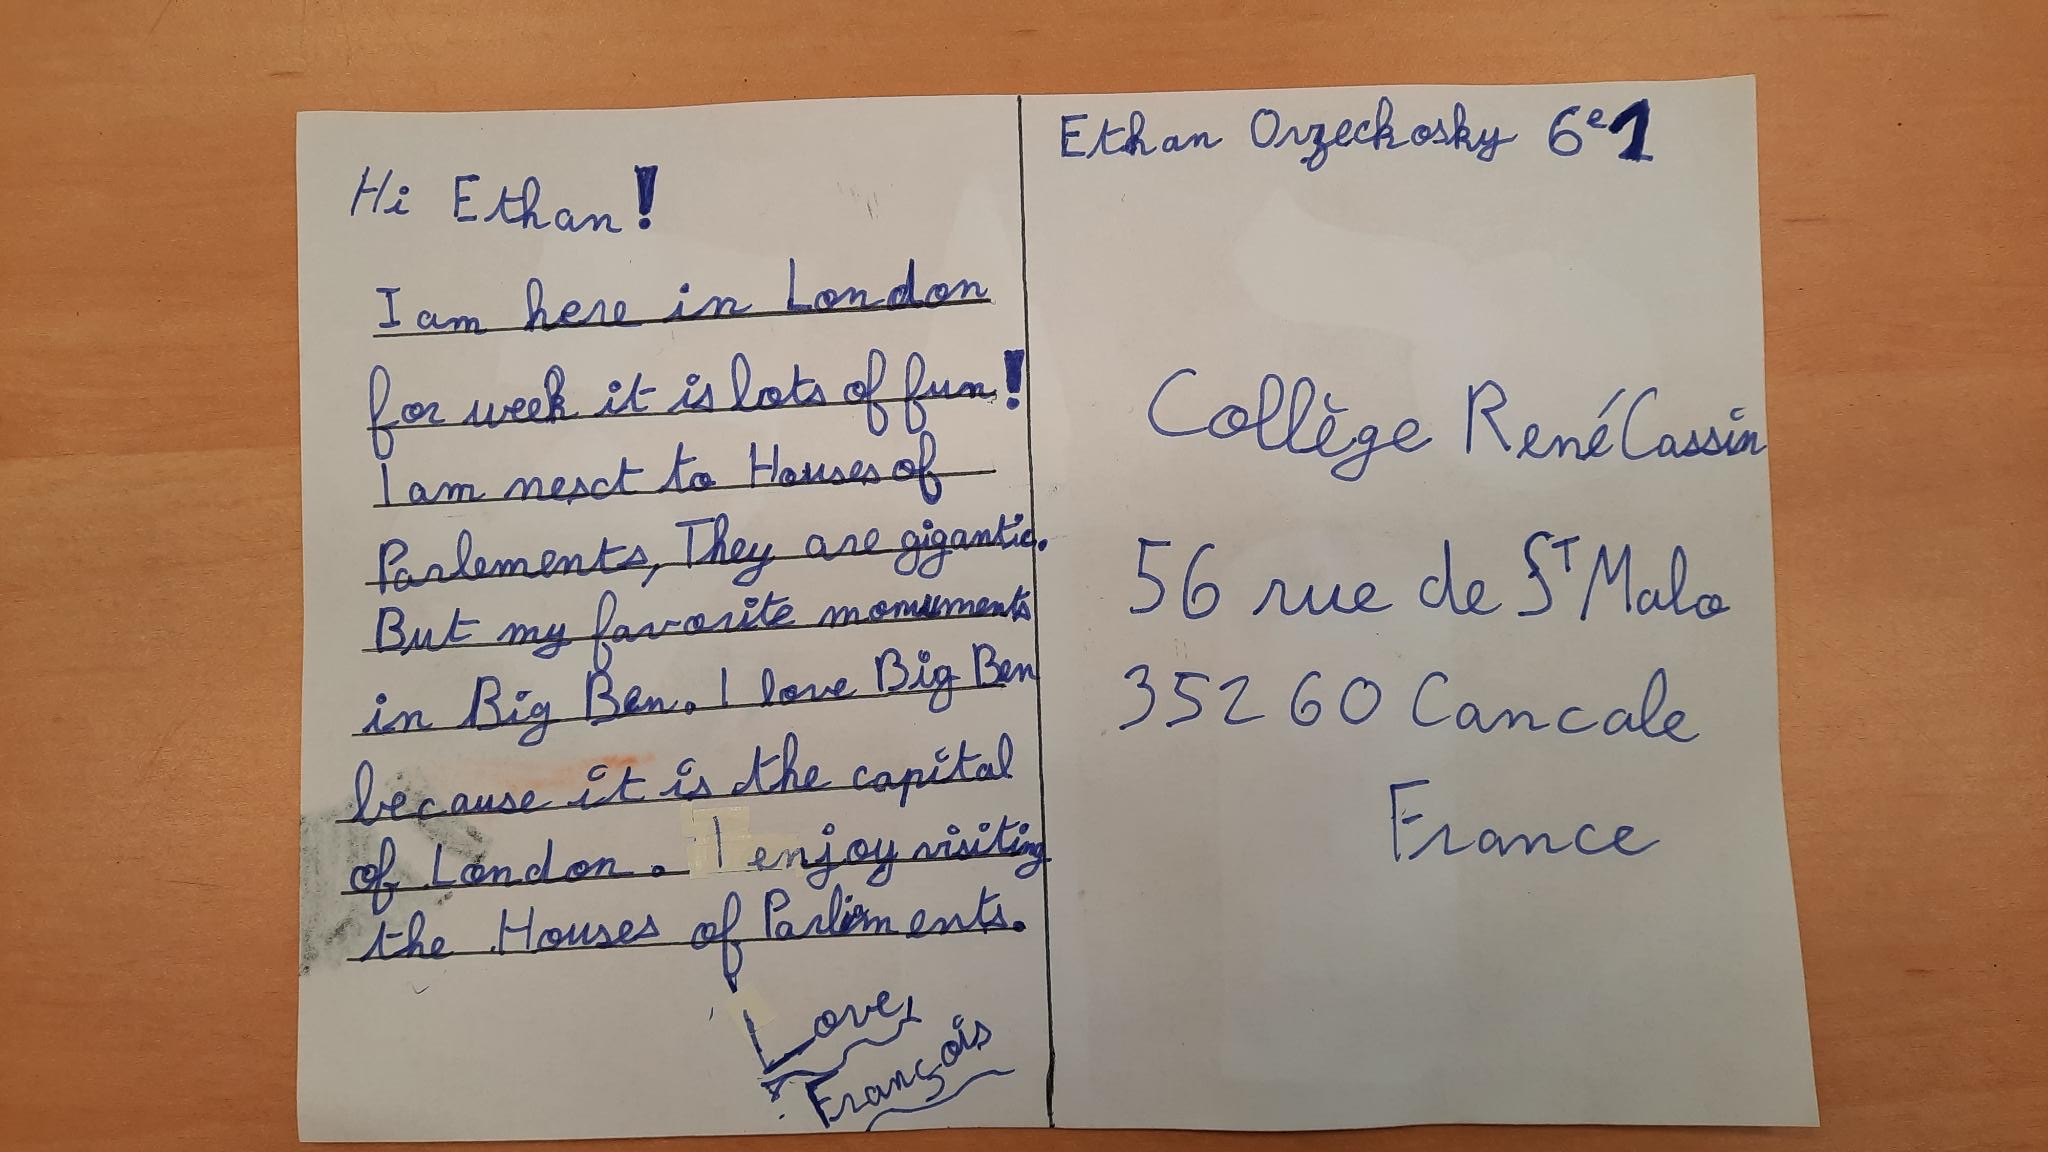 Hi Ethan!
I am here in London
for week it is lots of fun!
I am nesct to Houses of
Parlements, They are gigantic.
But my favorite monuments
in Big Ben. I love Big Ben
because it is the capital
of London. I enjoy visiting
the Houses of Parliments.
Love,
François
Ethan Orzeckosky 6e1
Collège René Cassin
56 rue de ST Malo
35260 Cancale
France